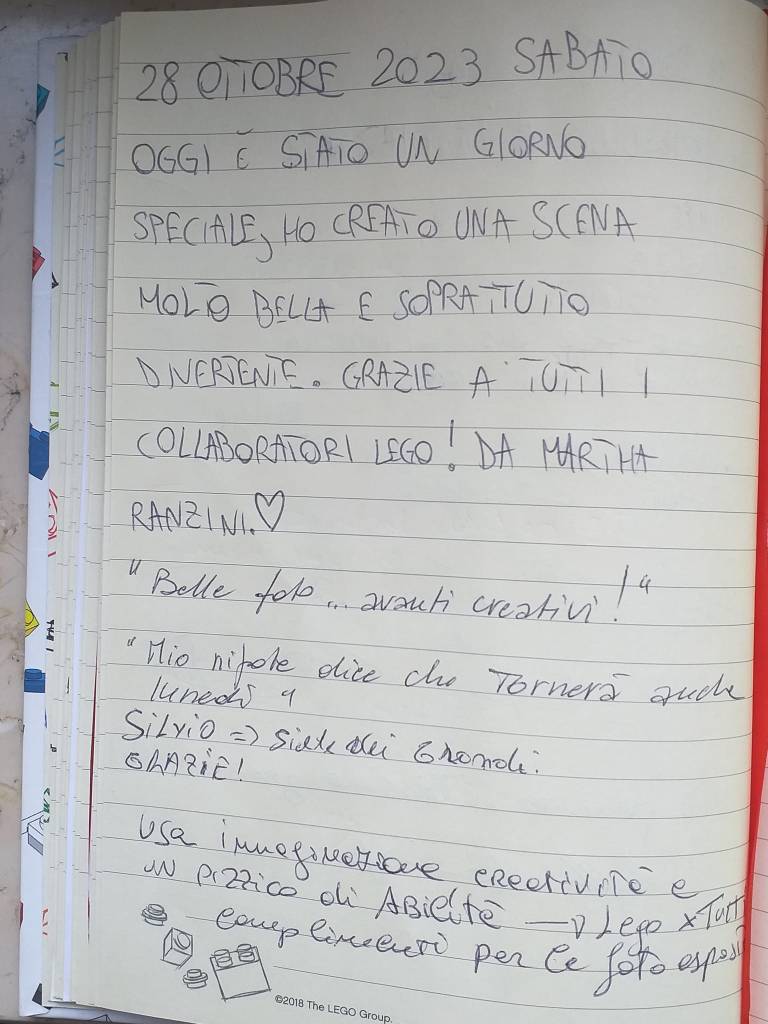 28 OTTOBRE 2023 SABATO
OGGI È STATO UN GIORNO
SPECIALE, HO CREATO UNA SCENA
MOLTO BELLA E SOPRATTUTTO
DIVERTENTE. GRAZIE A TUTTI I
COLLABORATORI LEGO! DA MARTHA
RANZINI.♡
"Belle foto... avanti creativi!"
"Mio nipote dice che Tornerà anche
lunedì"
Silvio => Siete dei Grandi.
GRAZIE!
Usa immaginazione creatività e
un pizzico di Abilità —> Lego x Tutti
complimenti per le foto esposte
©2018 The LEGO Group.